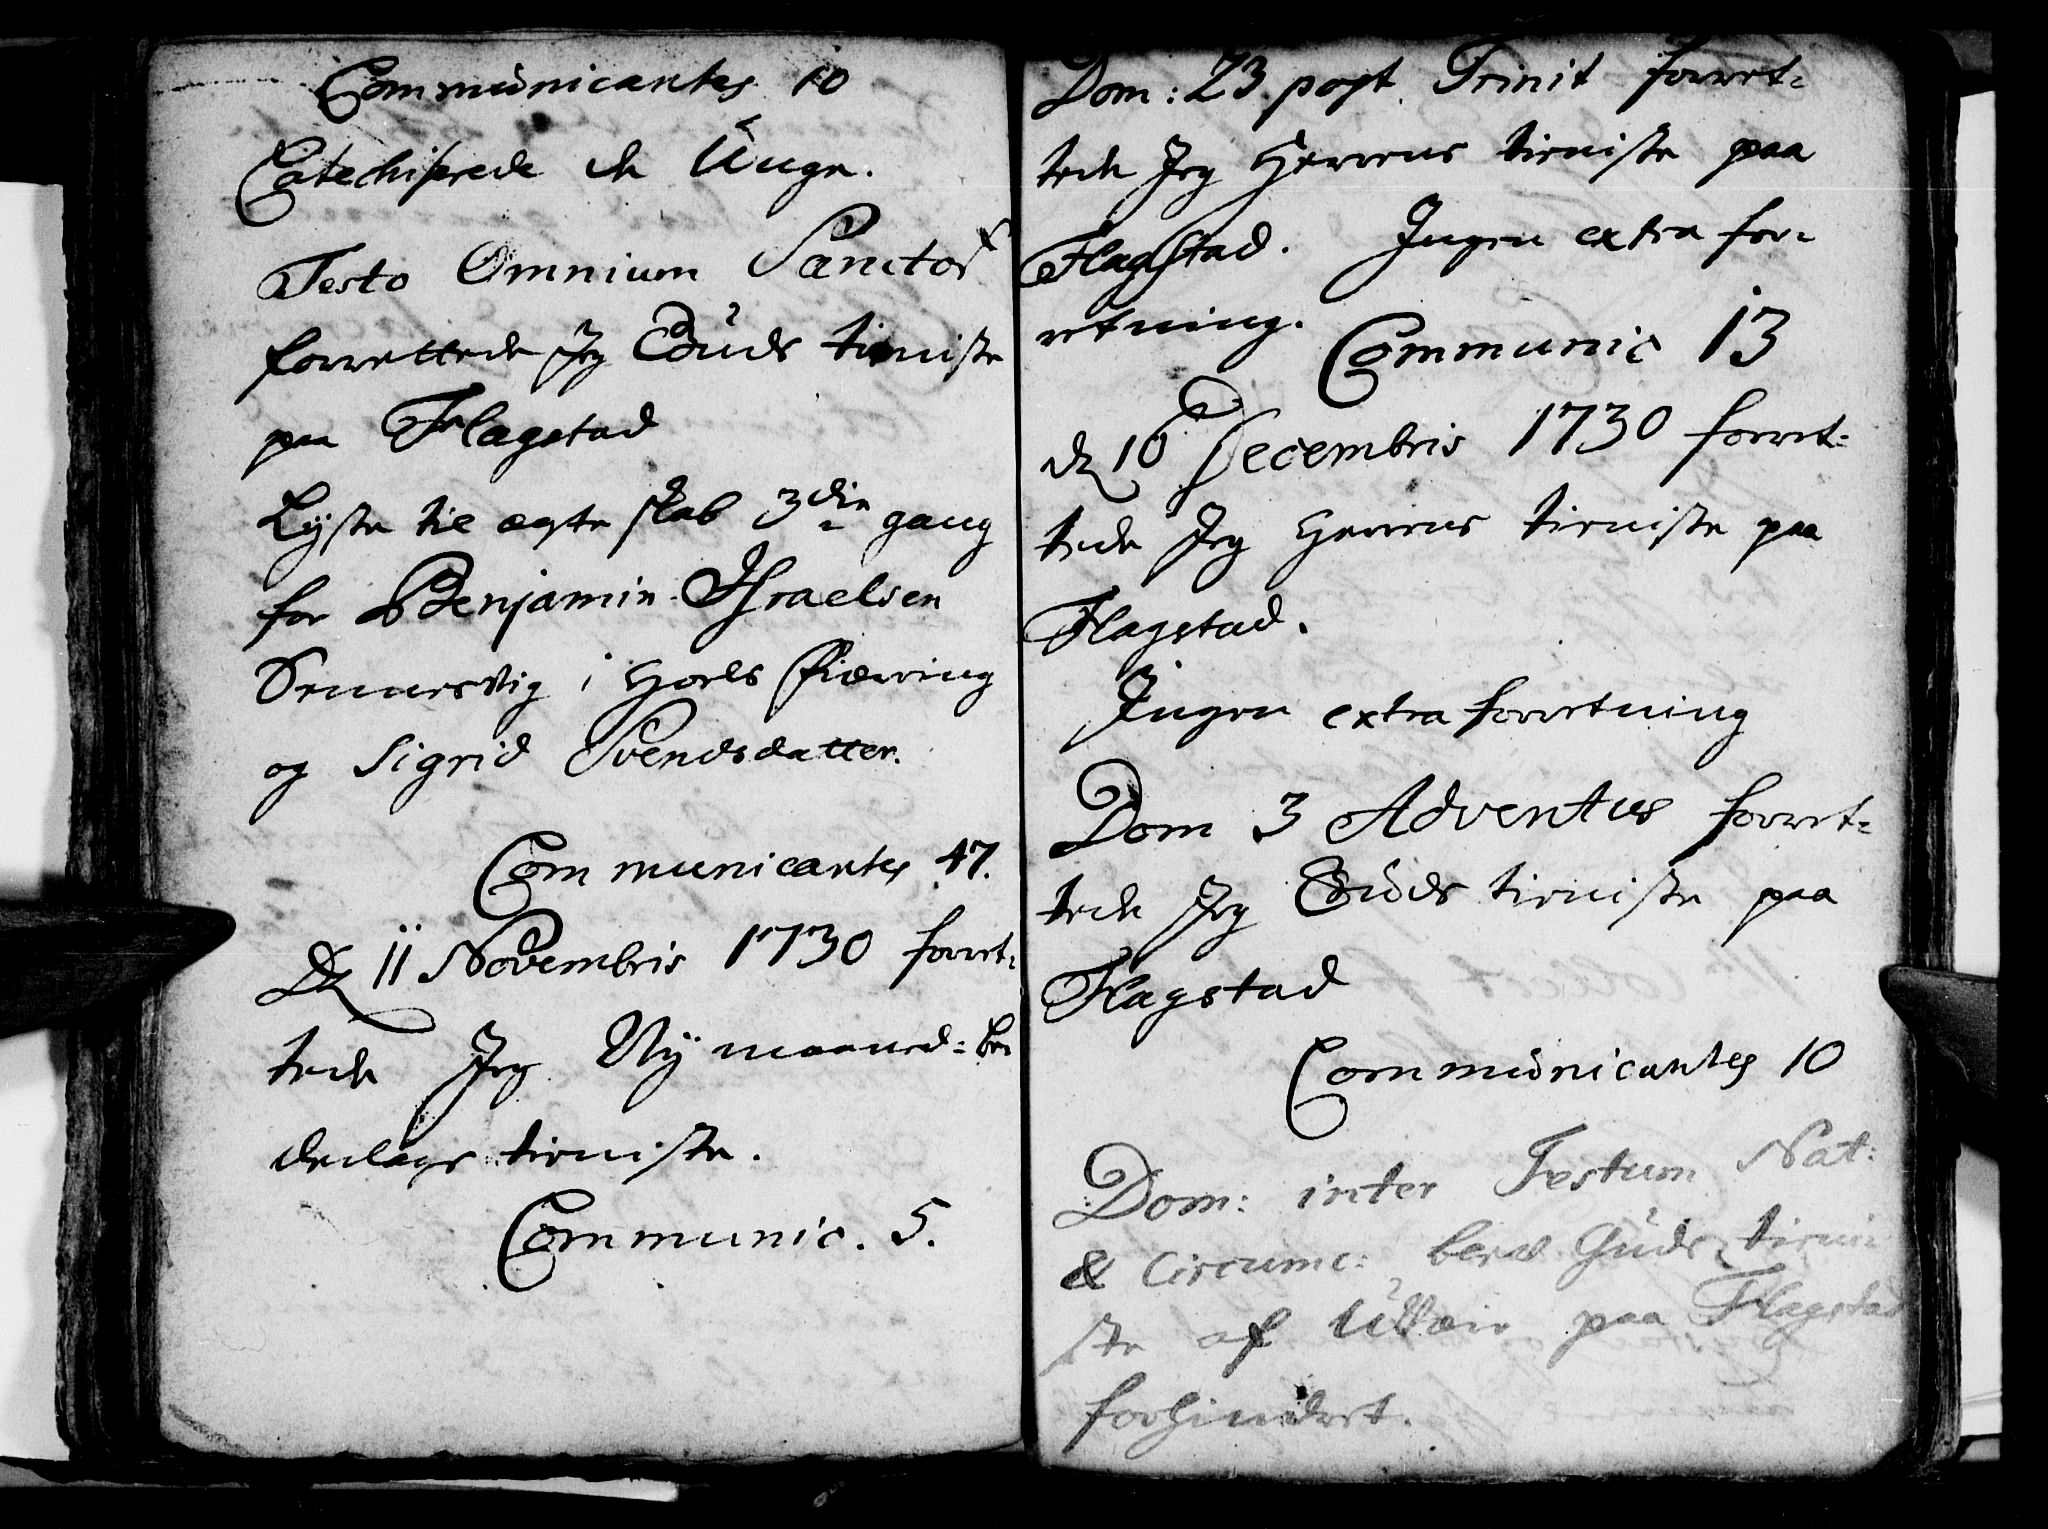 Communicantes 10
Catechiserede de Unge.
Festo Omnium Sanctor
forrettede Jeg Guds tieniste
paa Flagstad
Lyste til ægte skab 3die gang
for Benjamin Israelsen
i Hols Fiæring
og Sigrid Svendsdatter.
Communicantes 47.
D 11 Novembris 1730 forret-
tede Jeg Ny maaned= bee
dedags tieniste.
Communic. 5.
Dom: 23 post Trinit forret-
tede Jeg Herrens tieniste paa
Flagstad. Ingen extra for-
retning.
Communic 13
d 10 Decembris 1730 forret-
tede Jeg Herrens tieniste paa
Flagstad.
Ingen extra forretning
Dom 3 Adventus forret-
tede Jeg Guds tieniste paa
Flagstad
Communicantes 10
Dom: inter Festum Nat:
& Circumc: blev Guds tieni-
ste af Uveir paa Flagstad
forhindret.